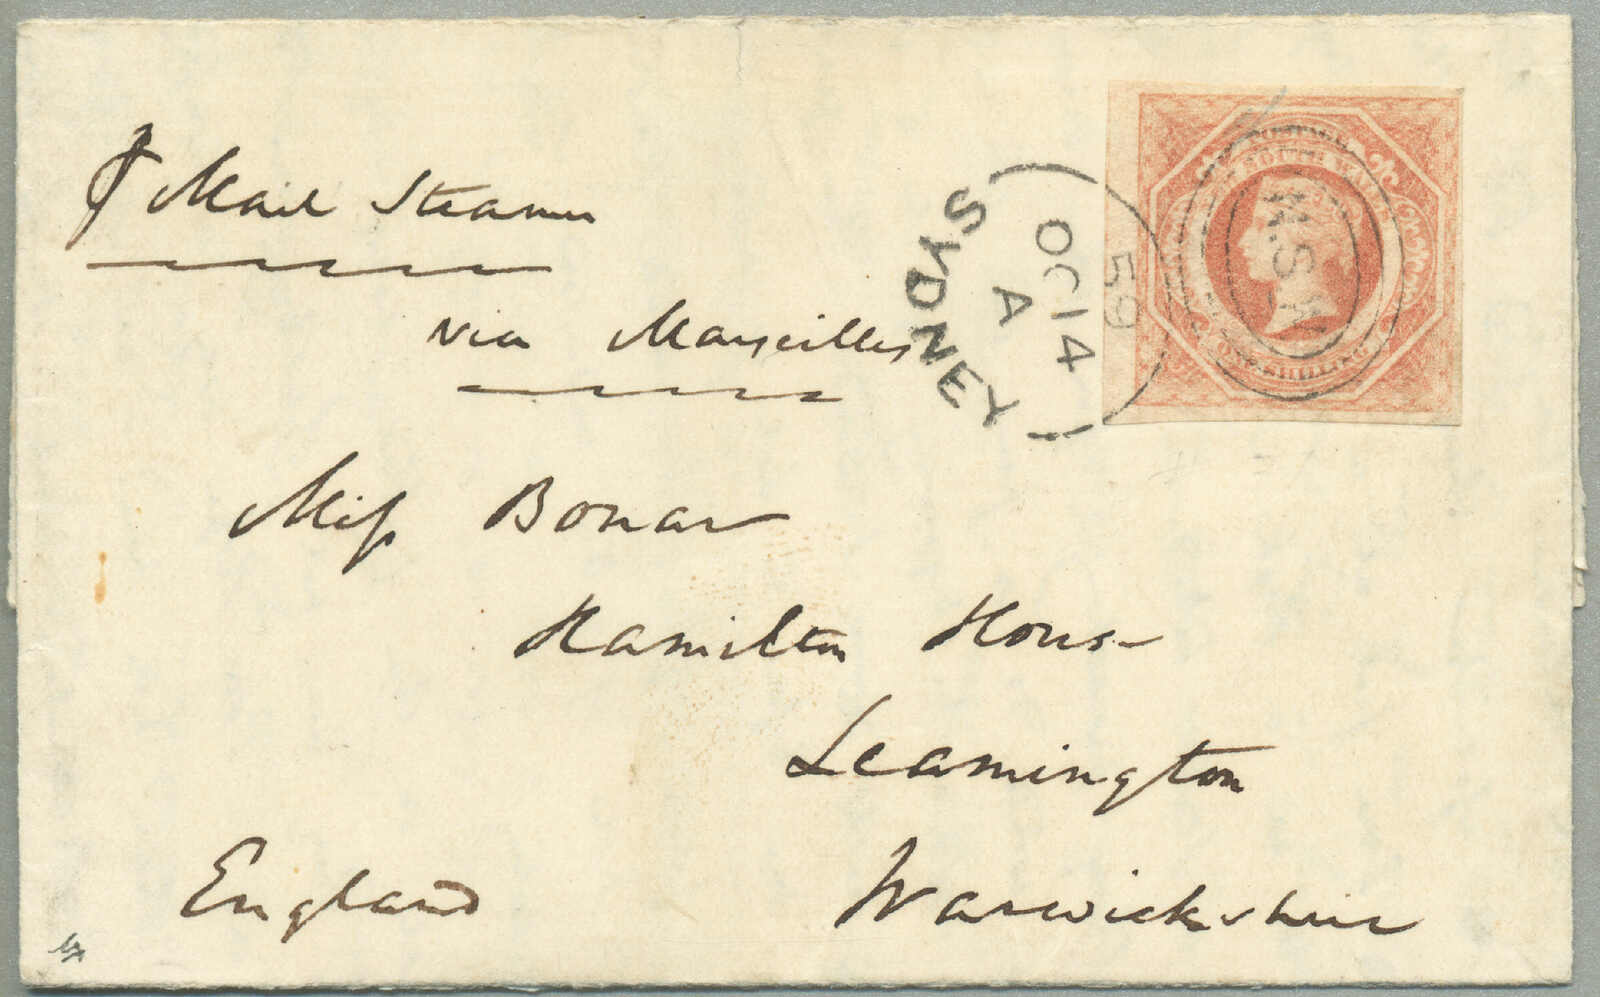 P Mail Steamer
via Marseilles
Miss Bonar
Hamilton House
Leamington
Warwickshire
England
SYDNEY
OC 14
A
59
N.S.W
SOUTH WALES
ONE SHILLING